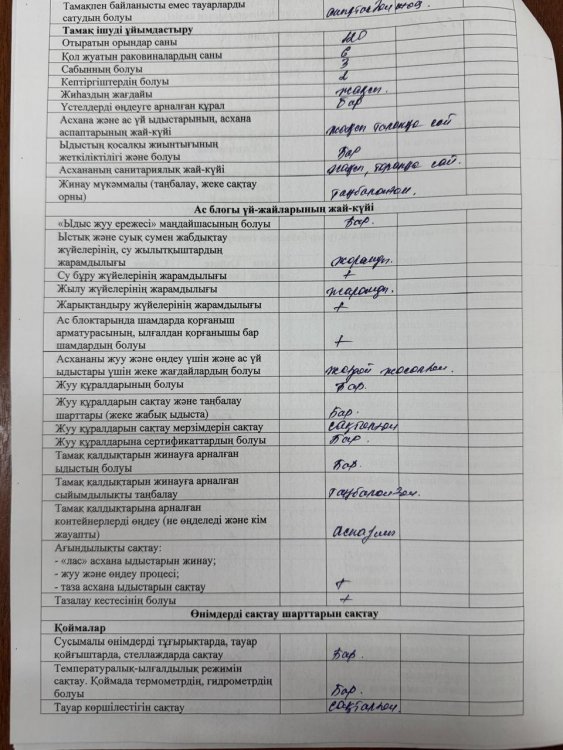 Тамақпен байланысты емес тауарларды
сатудың болуы
Тамақ ішуді ұйымдастыру
Отыратын орындар саны
Қол жуатын раковиналардың саны 6
Сабынның болуы 3
Кептіргіштердің болуы 2
Жиһаздың жағдайы жақсы.
Үстелдерді өңдеуге арналған құрал Бар
Асхана және ас үй ыдыстарының, асхана
аспаптарының жай-күйі жақсы талапқа сай
Ыдыстың қосалқы жиынтығының
жеткіліктілігі және болуы Бар
Асхананың санитариялық жай-күйі жақсы, талапқа сай.
Жинау мүкәммалы (таңбалау, жеке сақтау
орны) таңбаланған.
Ас блогы үй-жайларының жай-күйі
«Ыдыс жуу ережесі» маңдайшасының болуы Бар.
Ыстық және суық сумен жабдықтау
жүйелерінің, су жылытқыштардың
жарамдылығы жарамды.
Су бұру жүйелерінің жарамдылығы +
Жылу жүйелерінің жарамдылығы жарамды.
Жарықтандыру жүйелерінің жарамдылығы +
Ас блоктарында шамдарда қорғаныш
арматурасының, ылғалдан қорғанышы бар
шамдардың болуы +
Асхананы жуу және өңдеу үшін және ас үй
ыдыстары үшін жеке жағдайлардың болуы жағдай жасалған.
Жуу құралдарының болуы Бар.
Жуу құралдарын сақтау және таңбалау
шарттары (жеке жабық ыдыста) Бар.
Жуу құралдарын сақтау мерзімдерін сақтау сақталған
Жуу құралдарына сертификаттардың болуы Бар.
Тамақ қалдықтарын жинауға арналған
ыдыстың болуы Бар.
Тамақ қалдықтарын жинауға арналған
сыйымдылықты таңбалау таңбаланған.
Тамақ қалдықтарына арналған
контейнерлерді өңдеу (не өңделеді және кім
жауапты) аспазшы
Ағындылықты сақтау:
- «лас» асхана ыдыстарын жинау;
- жуу және өңдеу процесі;
- таза асхана ыдыстарын сақтау +
Тазалау кестесінің болуы +
Өнімдерді сақтау шарттарын сақтау
Қоймалар
Сусымалы өнімдерді тұғырықтарда, тауар
қойғыштарда, стеллаждарда сақтау Бар.
Температуралық-ылғалдылық режимін
сақтау. Қоймада термометрдің, гидрометрдің
болуы Бар.
Тауар көршілестігін сақтау сақталған.